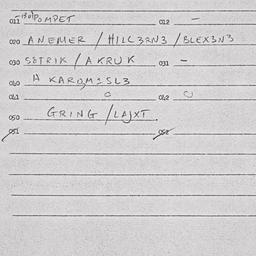 011 POMPET 012 -
020 ANEMER / HILC32N3 / BLEX3N3
030 SETRIK / AKRUK 031 -
040 A KARDM2SL3
041 0 042 0
050 GRING / LAJXT.
051 052